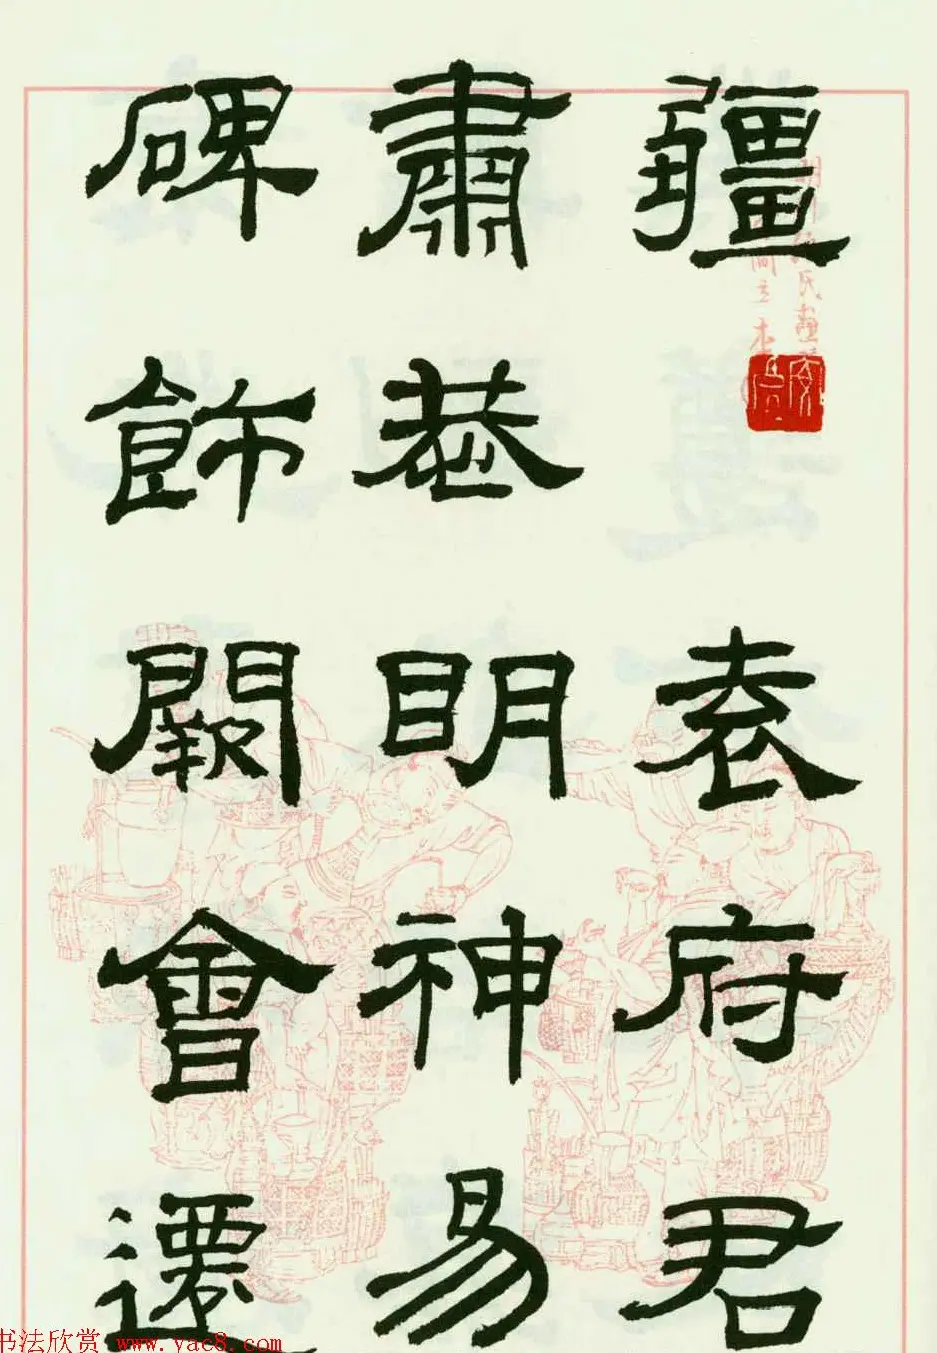 疆袁府君
肅恭明神易
碑飾闕會遷
书法欣赏 www.yac8.com